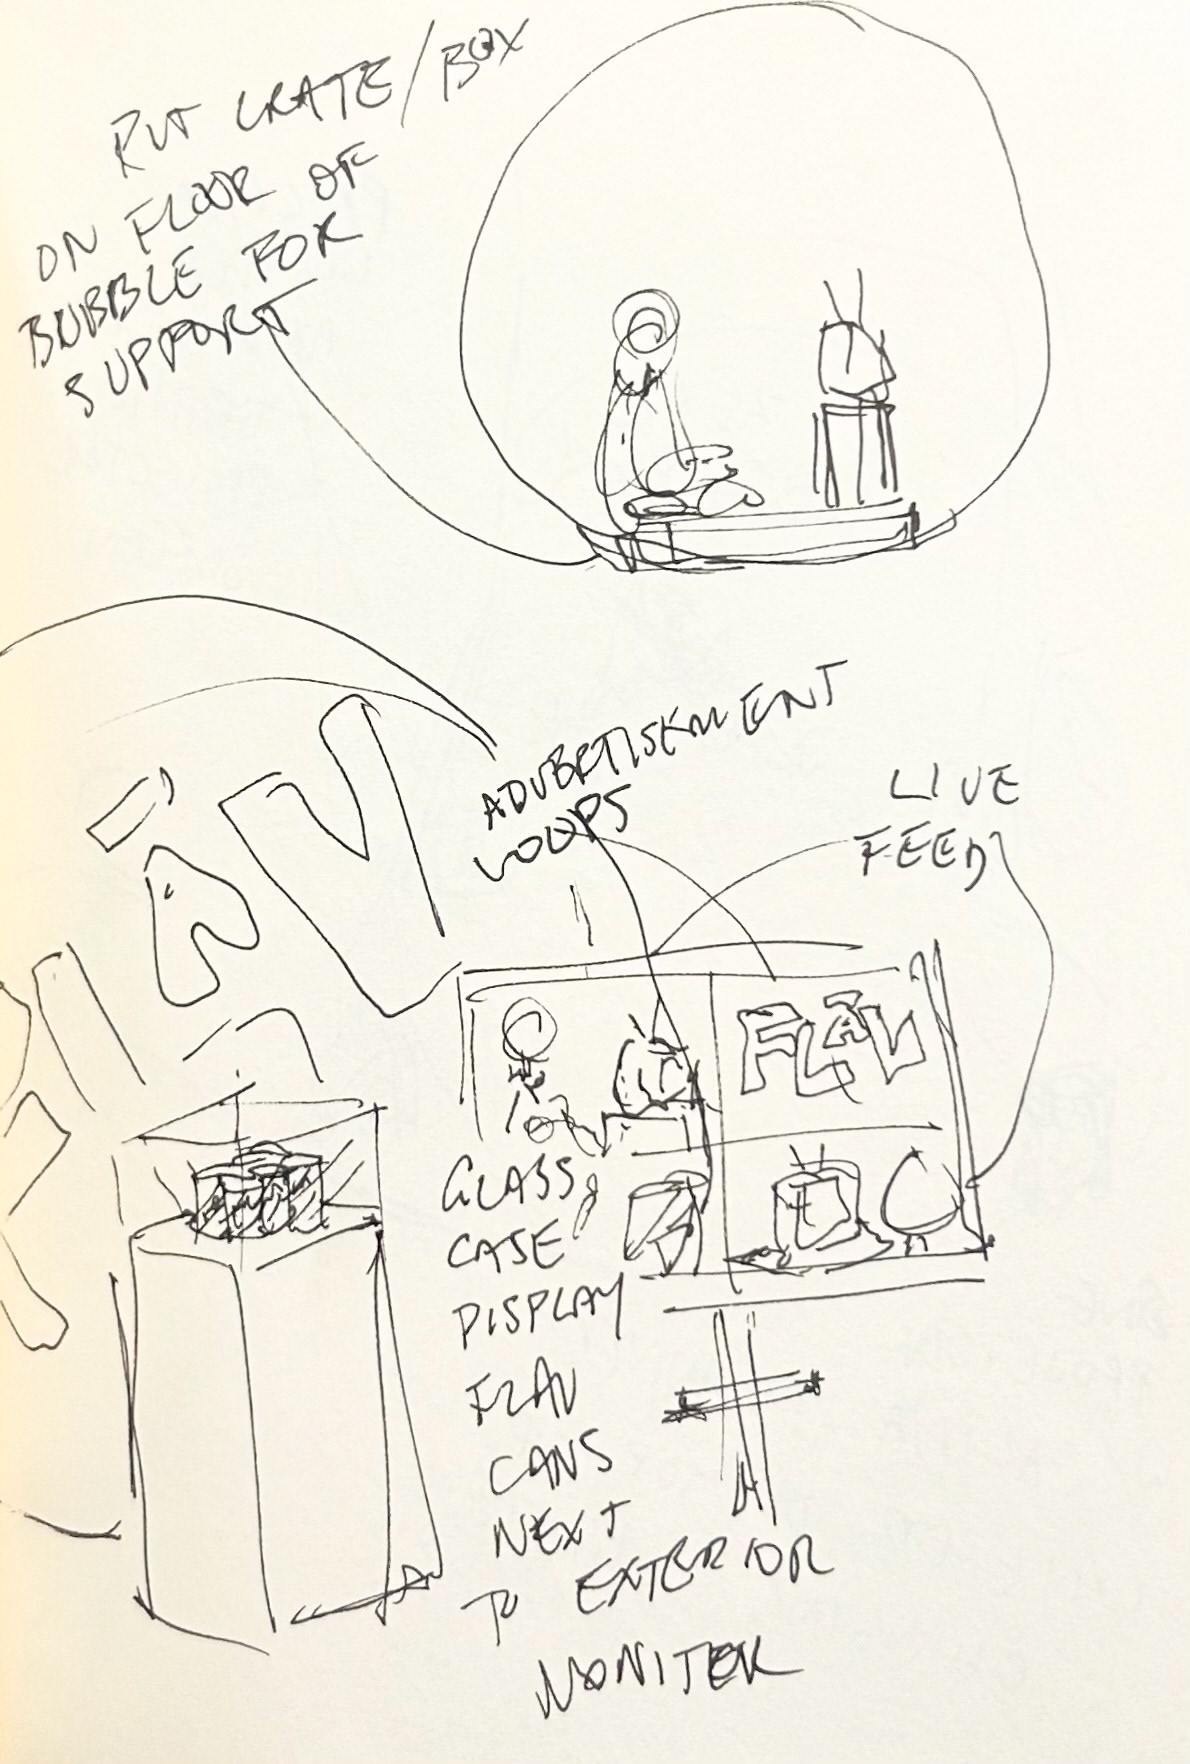 PUT CRATE/BOX
ON FLOOR OF
BUBBLE FOR
SUPPORT
ADVERTISEMENT
LOOPS
LIVE
FEED
FLAV
FLAV
GLASS
CASE
DISPLAY
FLAV
CANS
NEXT
TO EXTERIOR
MONITER